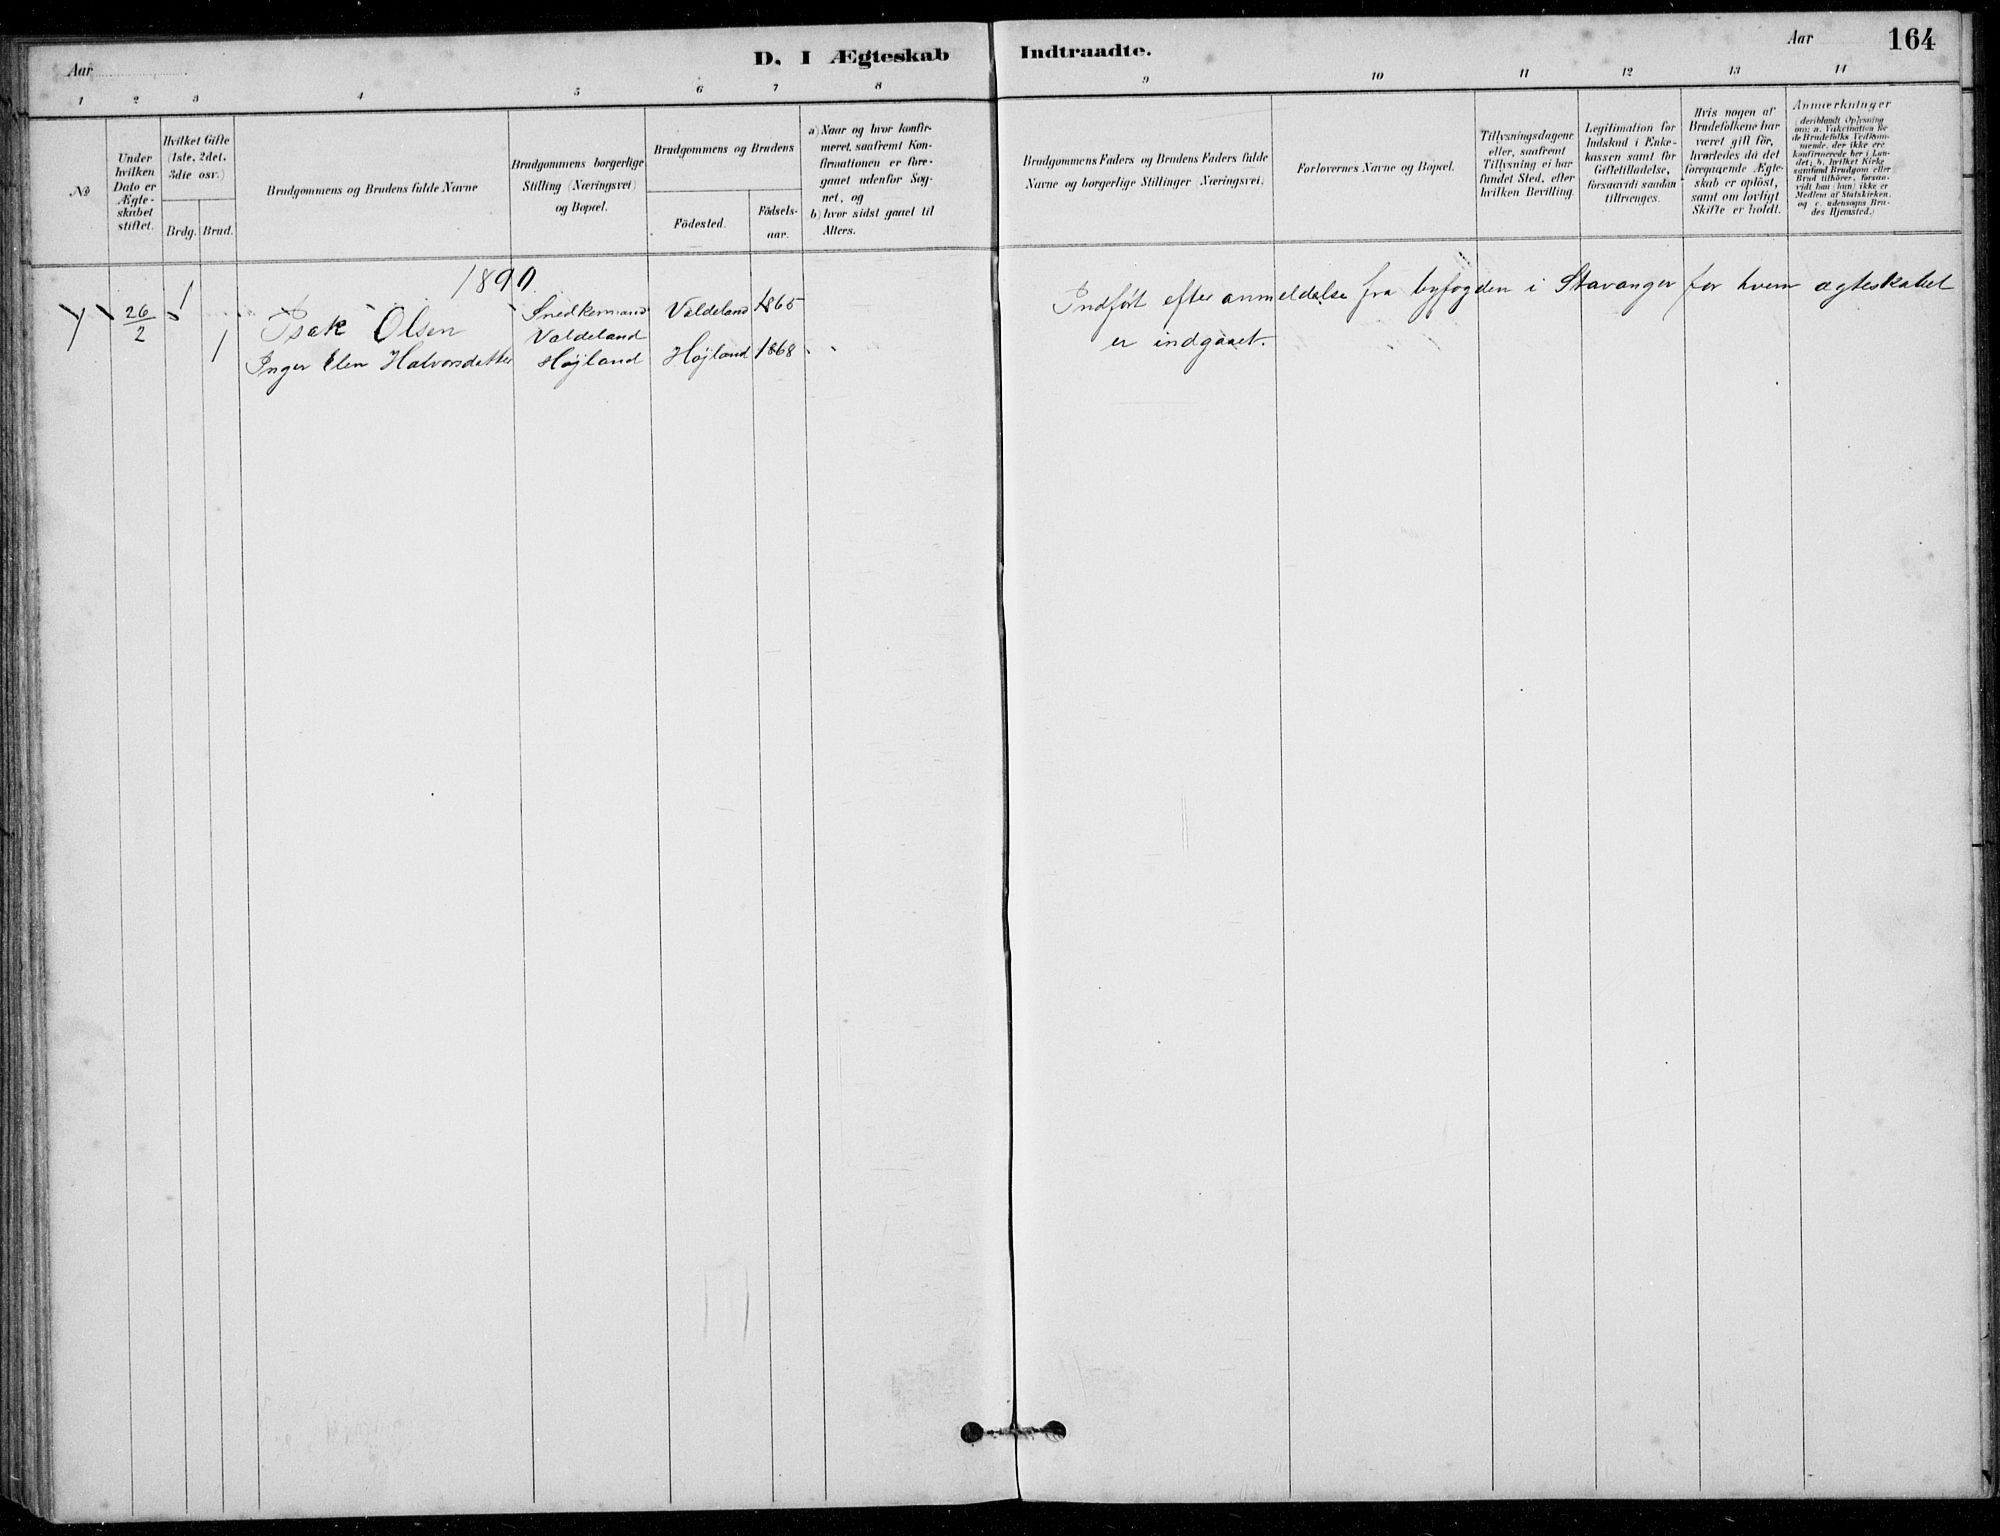 Aar
D. I Ægteskab Indtraadte.
Aar 164
1 2 3 4 5 6 7 8 9 10 11 12 13 14
No
Under hvilken Dato er Ægteskabet stiftet.
Hvilket Gifte (1ste, 2det, 3die osv.)
Brdg. Brud.
Brudgommens og Brudens fulde Navne
Brudgommens borgerlige Stilling (Næringsvei) og Bopæl.
Brudgommens og Brudens
Födested.
Födselsaar.
a) Naar og hvor konfirmeret, saafremt Konfirmationen er foregaaet udenfor Sognet, og
b) hvor sidst gaaet til Alters.
Brudgommens Faders og Brudens Faders fulde
Navne og borgerlige Stillinger (Næringsvei)
Forlovernes Navne og Bopæl.
Tillysningsdagene eller, saafremt Tillysning ei har fundet Sted, efter hvilken Bevilling.
Legitimation for Indskud i Enkekassen samt for Giftetilladelse, forsaavidt saadan tiltrænges.
Hvis nogen af Brudefolkene har været gift för, hvorledes da det foregaaende Ægteskab er oplöst, samt om lovligt Skifte er holdt.
Anmerkninger (deriblandt Oplysning om: a. Vakcination for de Brudefolks Vedkommende, der ikke ere konfirmerede her i Landet; b. hvilket Kirkesamfund Brudgom eller Brud tilhörer, forsaavidt han (hun) ikke er Medlem af Statskirken, og c. udensogns Brudes Hjemsted.)
1890.
26/2 1 Isak Olsen Snedkermand Valdeland Valdeland 1865 Indført efter anmeldelse fra byfogden i Stavanger for hvem ægteskabet
1 Inger Elen Halvorsdatter Højland Højland 1868 er indgaaet.